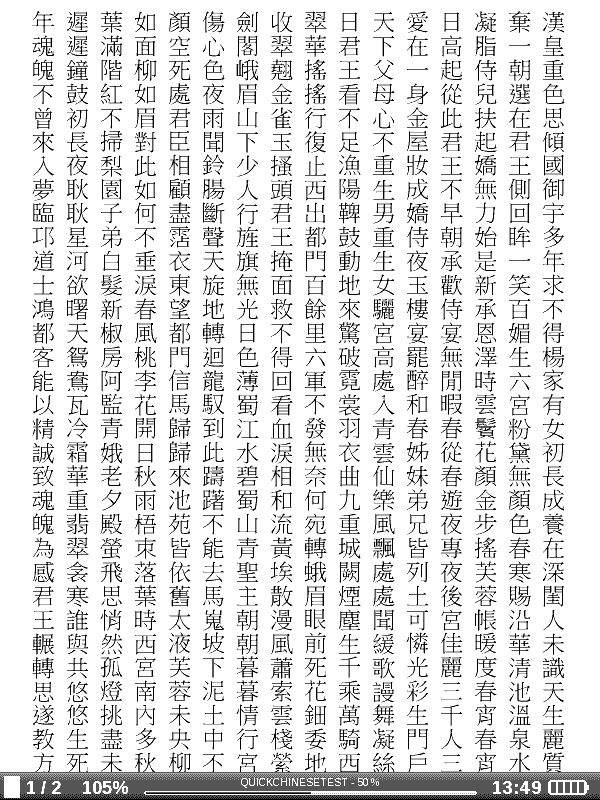 漢皇重色思傾國御宇多年求不得楊家有女初長成養在深閨人未識天生麗質
棄一朝選在君王側回眸一笑百媚生六宮粉黛無顏色春寒賜沿華清池溫泉水
凝脂侍兒扶起嬌無力始是新承恩澤時雲鬢花顏金步搖芙蓉帳暖度春宵春宵
日高起從此君王不早朝承歡侍宴無閒暇春從春遊夜專夜後宮佳麗三千人三
愛在一身金屋妝成嬌侍夜玉樓宴罷醉和春姊妹弟兄皆列土可憐光彩生門戶
天下父母心不重生男重生女驪宮高處入青雲仙樂風飄處處聞緩歌謾舞凝絲
日君王看不足漁陽鞞鼓動地來驚破霓裳羽衣曲九重城闕煙塵生千乘萬騎西
翠華搖搖行復止西出都門百餘里六軍不發無奈何宛轉蛾眉眼前死花鈿委地
收翠翹金雀玉搔頭君王掩面救不得回看血淚相和流黃埃散漫風蕭索雲棧縈
劍閣峨眉山下少人行旌旗無光日色薄蜀江水碧蜀山青聖主朝朝暮暮情行宮
傷心色夜雨聞鈴腸斷聲天旋地轉迴龍馭到此躊躇不能去馬嵬坡下泥土中不
顏空死處君臣相顧盡霑衣東望都門信馬歸歸來池苑皆依舊太液芙蓉未央柳
如面柳如眉對此如何不垂淚春風桃李花開日秋雨梧束落葉時西宮南內多秋
葉滿階紅不掃梨園子弟白髮新椒房阿監青娥老夕殿螢飛思悄然孤燈挑盡未
遲遲鐘鼓初長夜耿耿星河欲曙天鴛鴦瓦冷霜華重翡翠衾寒誰與共悠悠生死
年魂魄不曾來入夢臨邛道士鴻都客能以精誠致魂魄為感君王輾轉思遂教方
1 / 2 105% QUICKCHINESETEST - 50% 13:49